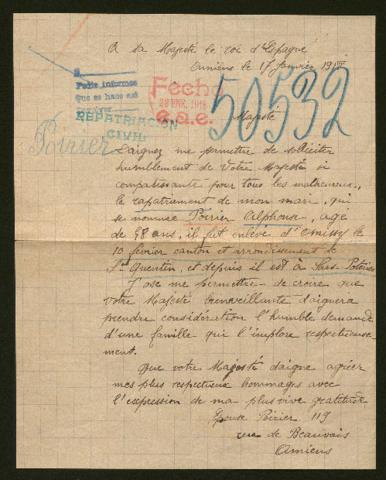 A Sa Majesté le roi d'Espagne
Amiens le 17 Janvier 19
Pedir informes
que se hace así
REPATRIACIÓN
CIVIL
Fecha
23 ENE. 1918
50532
Poirier
Majesté
Daignez me permettre de solliciter
humblement de Votre Majesté si
compatissante pour tous les malheureux,
le rapatriement de mon mari, qui
se nomme Poirier Alphonse, age
de 48 ans, il fut enlevé d'
10 février canton et arrondissement de
St Quentin, et depuis il est à
J'ose me permettre de croire que
votre Majesté bienveillante daignera
prendre considération l'humble demande
d'une famille qui l'implore respectueuse
ment.
Que votre Majesté daigne agréer
mes plus respectueux hommages avec
l'expression de ma plus vive gratitude
Epouse Poirier 119
rue de Beauvais
Amiens